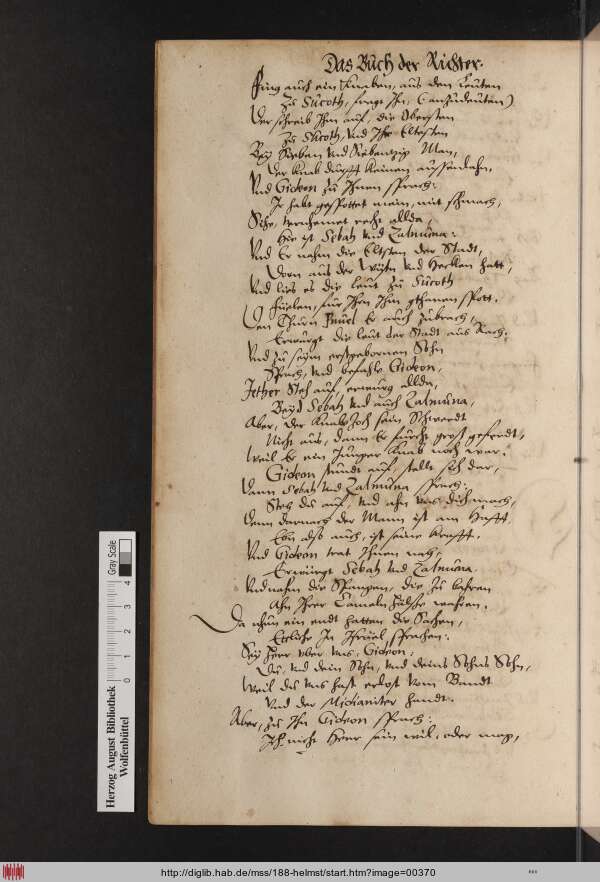 Das Buch der Richter.
Fing auch ein Knaben, aus den Leuten
Zu Sucoth, fragt Ihn,
Der schreib Ihm auf, die Obersten
Zu Sucoth, und Ihr Eltesten
Bey Sieben und Siebentzig Man,
Der Knab keinen
Und Gideon zu Ihnen sprach:
Ir habt gespottet mein, mit schmach,
Sihe, recht allda,
Hie ist Sebah und Zalmuna:
Und Er nahm die Eltsten der Stadt,
Dorn aus der Wüstn und Hecken hatt,
Und lies es die leut zu Sucoth
Füelen, für Ihn Ihm gthanen spott.
Den Thurn Pnuel Er auch zubrach,
Erwürgt die leut der Stadt aus Rach:
Und zu seym erstgebornen Sohn
Sprach, und befahle Gideon,
Jether Steh auf, erwürg allda,
Beyd Sebah und auch Zalmuna,
Aber, der Knab Zoch sein Schwerdt
Nicht aus, dann Er furcht
Weil Er ein Junger Knab noch war:
Gideon stundt auf, stelt sich dar,
Dann Sebah und Zalmuna sprach:
Steh du auf, und
Denn darnach der Mann ist am
Ebn also auch, ist seine Krafft.
Und Gideon trat Ihnen nach,
Erwürgt Sebah und Zalmuna.
Und nahm die Spangen, die Zu
Ahn Ihrer Cameln Hälse wahren.
Da nhun ein endt hatten die Sachen,
Ettliche In Israel sprachen:
Sey Herr uber uns, Gideon:
Du, und dein Sohn, und deins Sohns Sohn,
Weil du uns hast erlost vom Bandt
Und der Midianiter handt.
Aber, zu Ihn Gideon sprach:
Ich nicht Herr sein wil, oder mag,
Gray Scale
0 1 2 3 4
Herzog August Bibliothek
Wolfenbüttel
http://diglib.hab.de/mss/188-helmst/start.htm?image=00370